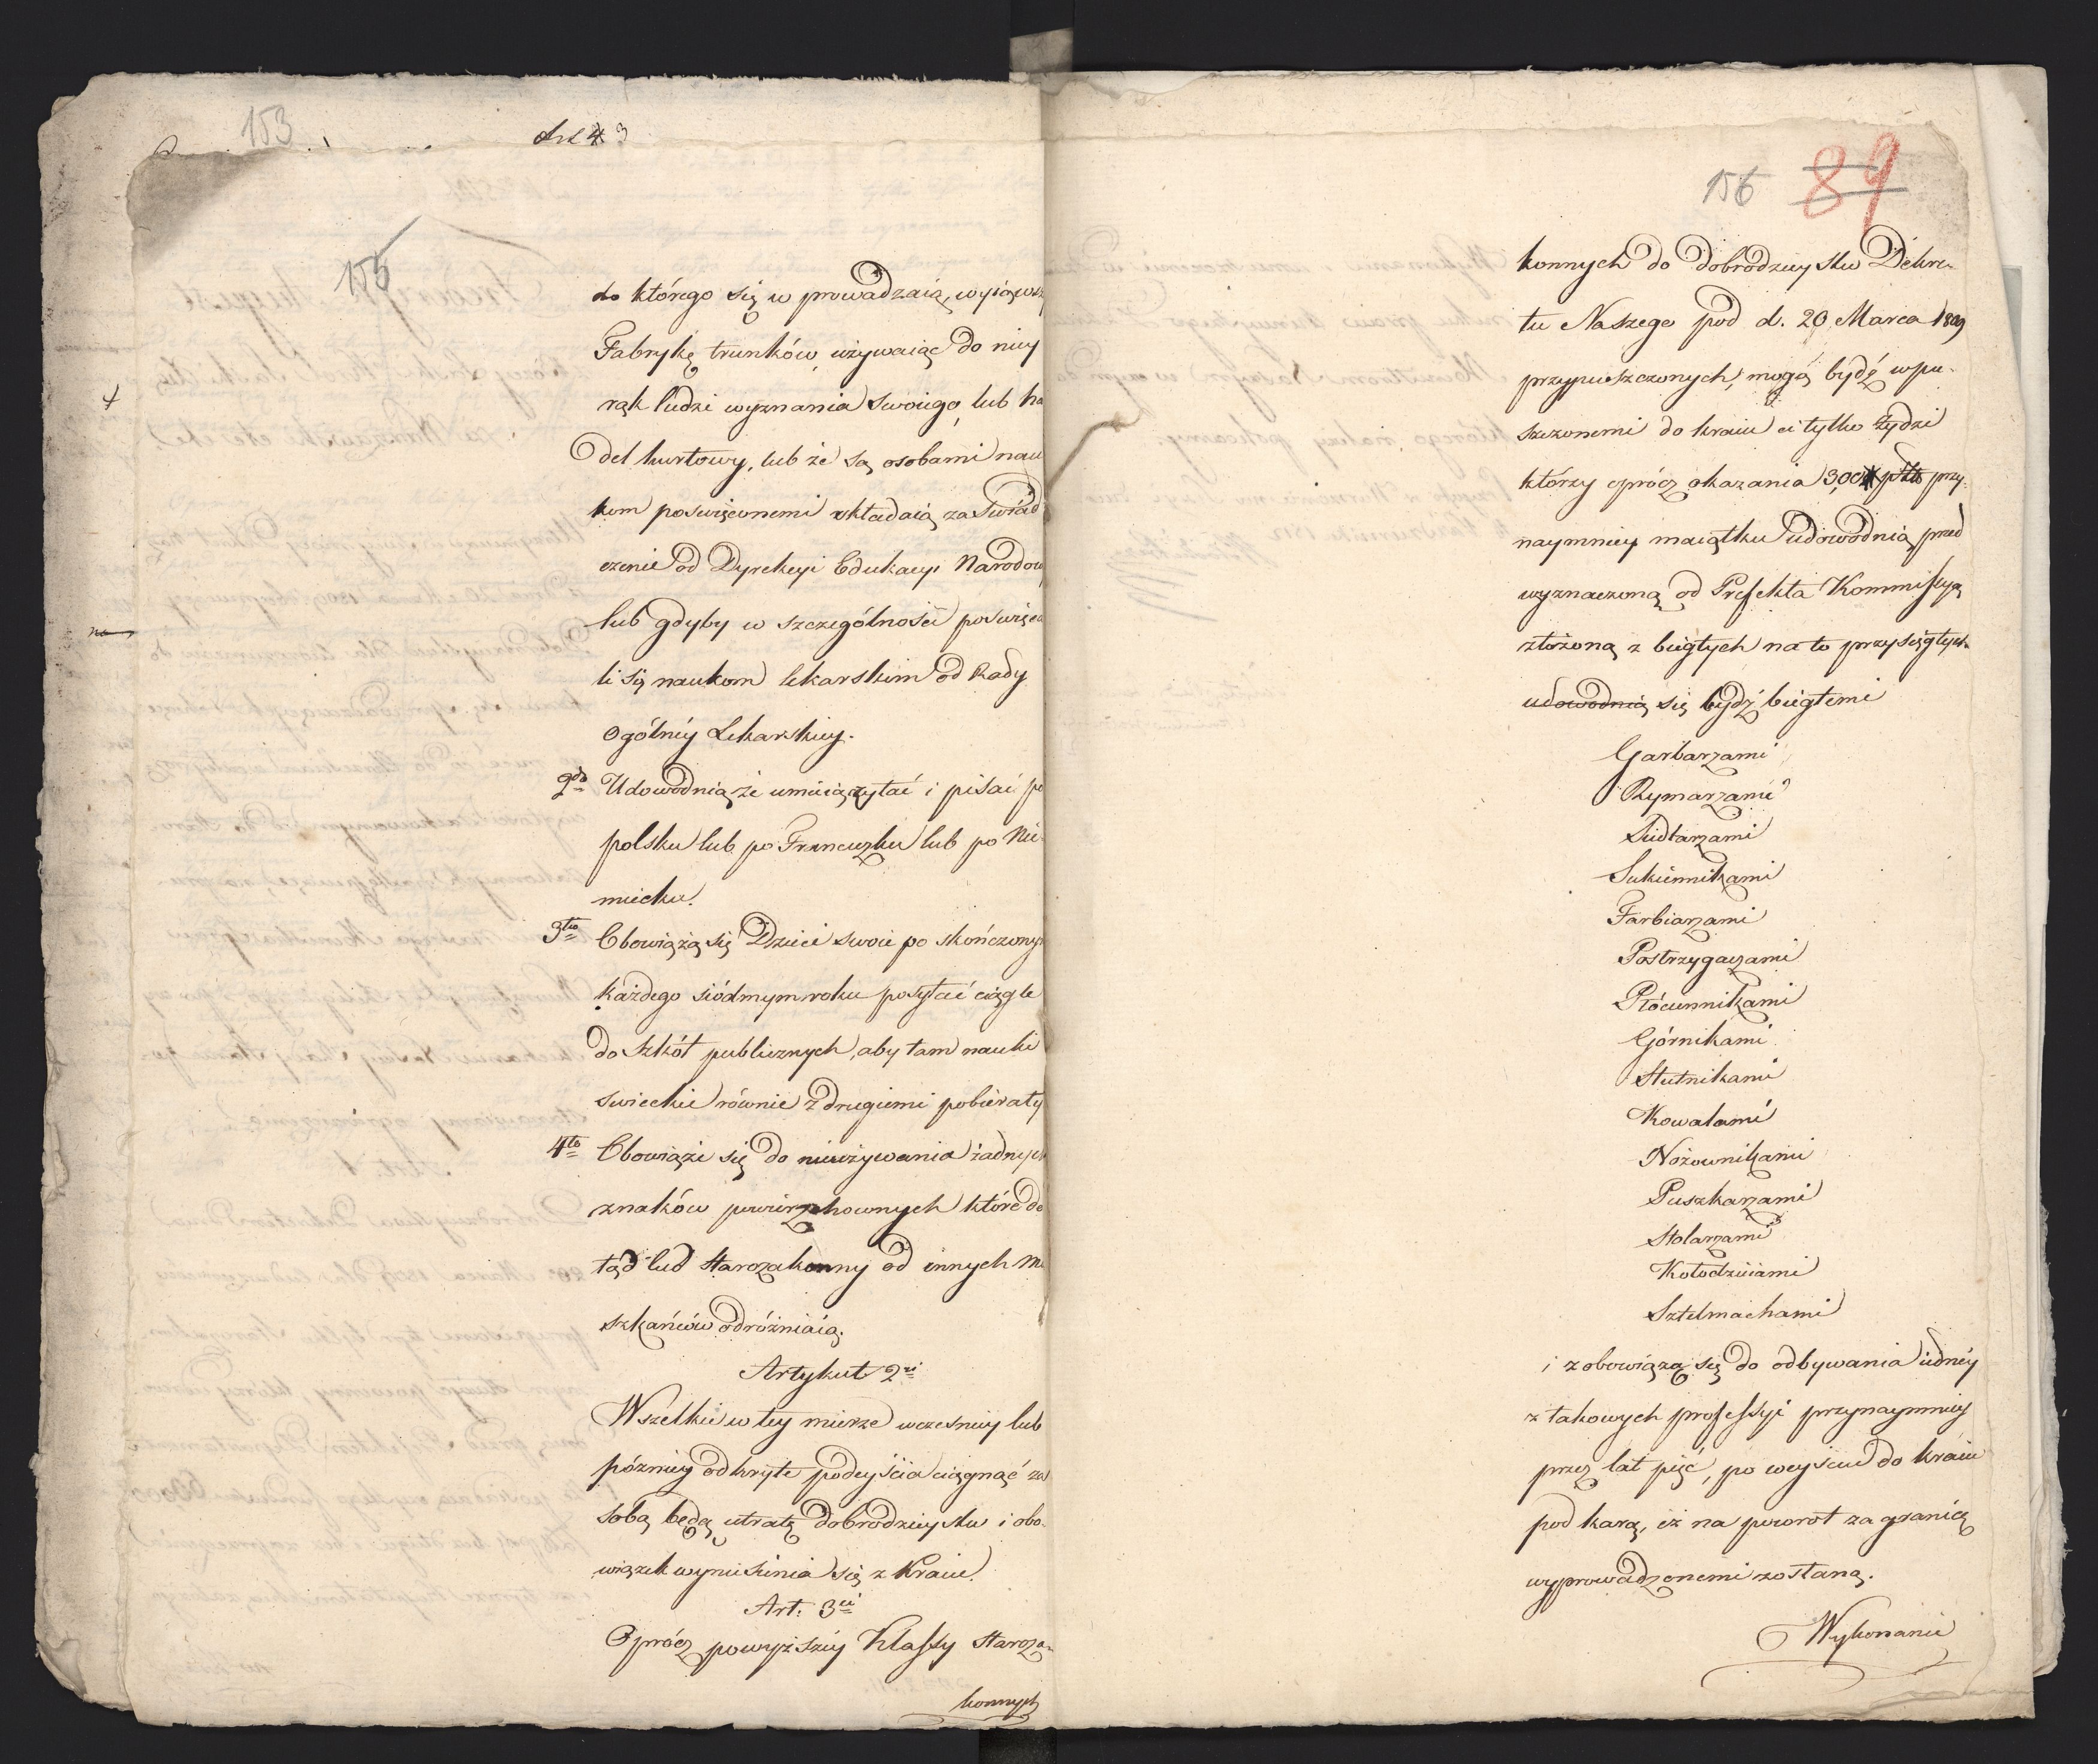 153
Art 4 3
155
do którego się w prowadzaią, wyiąwszy
Fabrykę trunków, używaiąc do niey
rąk ludzi wyznania swoiego, lub ha
del hurtowy, lub że są osobami nau
kom poswięconemi składaią zaswiad
czenie od Dyrekcyi Edukacyi Narodow
lub gdyby w szczególności poswięca
li się naukom lekarskim od Rady
Ogólnéy Lekarskiey.
2do Udowodnią że umieią czytać i pisać po
polsku lub po Francuzku lub po Nie-
miecku.
3tio Obowiążą się Dzieci swoie po skończonym
każdego siódmym roku posyłać ciągle
do Szkół publicznych, aby tam nauki
swieckie równie z drugiemi pobierały
4to Obowiąże się do nieużywania żadnych
znaków powierzchownych które do
tąd lud Starozakonny od innych mie
szkańców odróżniaią.
Artykuł 2gi
Wszelkie w tey mierze wczesniey lub
pózniey odkryte podeyścia ciągnąć za
sobą będą utratę dobrodzieystw i obo-
wiązek wyniesienia się z Kraiu.
Art: 3ci
Oprócz powyższéy Klassy Staroza-
konnych
156 89
konnych do dobrodzieystw Dekre-
tu Naszego pod d. 20 Marca 1809
przypuszczonych, mogą bydź wpu-
szczonemi do kraiu ci tylko Żydzi
którzy oprócz okazania 300 przy-
naymniey maiątku udowodnią przed
wyznaczoną od Prefekta Kommissyą
złożoną z biegłych na to przysięgłych
udowodnią się bydź biegłemi
Garbarzami
Rymarzami
Siodlarzami
Sukiennikami
Farbiarzami
Postrzygaczami
Płóciennikami
Górnikami
Hutnikami
Kowalami
Nożownikami
Puszkarzami
Stolarzami
Kołodzieiami
Sztelmachami
i zobowiążą się do odbywania iednéy
z takowych professyi przynaymniey
przez lat pięć, po weyściu do kraiu
pod karą, iż na powrót za granicę
wyprowadzonemi zostaną.
Wykonanie